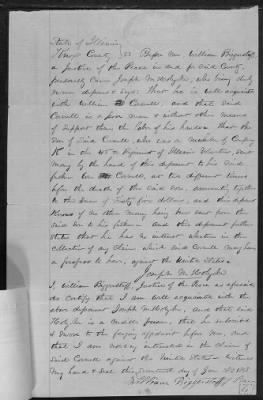 State of Illinois
Knox County SS Before me, William Biggerstaff,
a Justice of the Peace in and for said County,
personally came Joseph McWolykin, who being duly
sworn deposes & says: That he is well acquainted
with William Connell, and that said
Connell is a poor man & without other means
of support than the labor of his hands. That the
son of said Connell who was a member of Company
K in the 45th Regiment of Illinois
money by the hand of this deponent to his said
father Connell, at two different times
before the death of the said son, amounting together
to the sum of Sixty five dollars, and this deponent
knows of no other money being ever sent from the
said son to his father. And this deponent further
states that he has no interest whatever in the
collection of any claim which said Connell may have
a prospect to have, against the United States.
Joseph
I, William Biggerstaff, Justice of the Peace as aforesaid,
do certify that I am well acquainted with the
above deponent Joseph and that said
is a credible person, that he subscribed
& swore to the foregoing affidavit before me, and
that I am not any interested in the claim of
said Connell against the United States. Witness
my hand & seal this day of Jan. AD 186
William Biggerstaff J. Peace